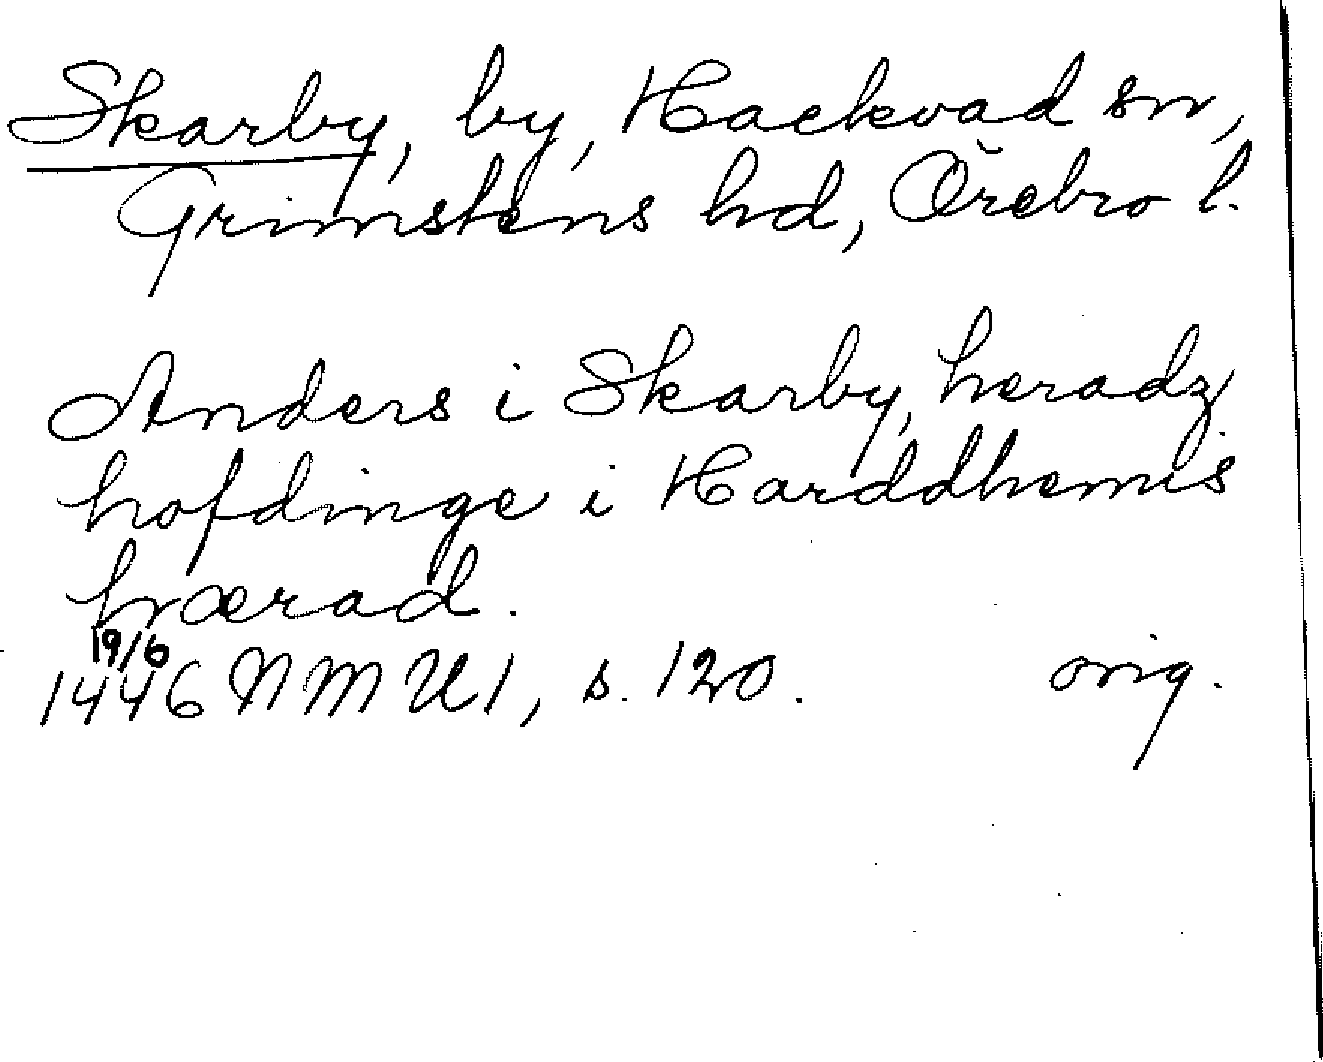 Skarby, by, Hackvad sn,
Grimstens hd, Örebro l.
Anders i Skarby, heradz
hofdinge i Harddhemis
hærad.
19/6
1446 NMU1, s. 120. orig.